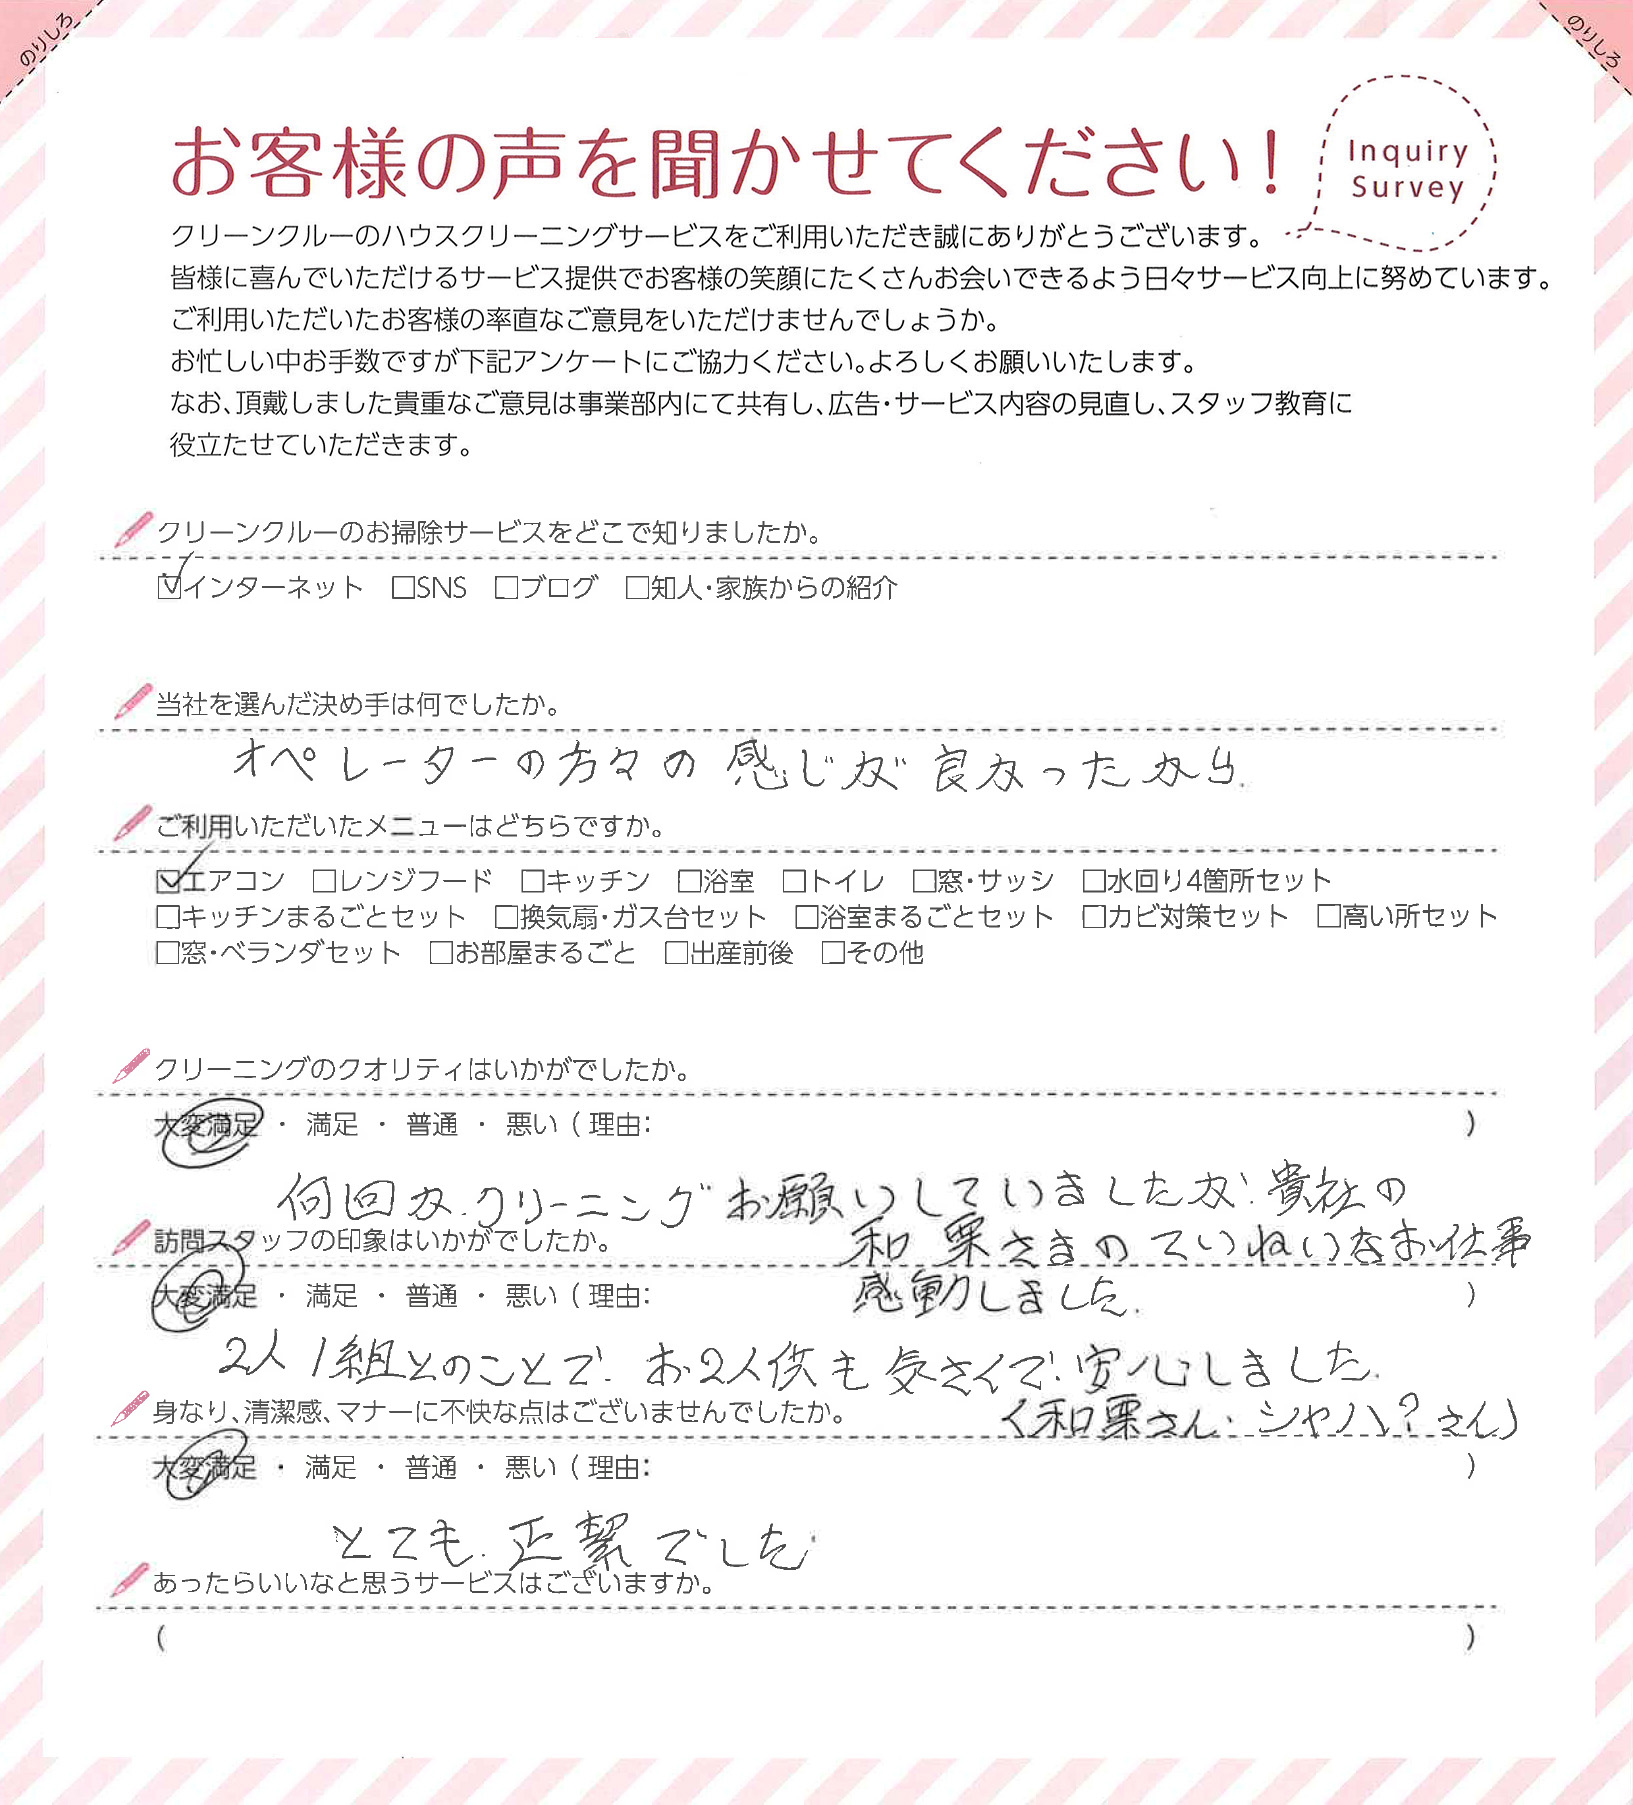 のりしろ
のりしろ
お客様の声を聞かせてください！
Inquiry
Survey
クリーンクルーのハウスクリーニングサービスをご利用いただき誠にありがとうございます。
皆様に喜んでいただけるサービス提供でお客様の笑顔にたくさんお会いできるよう日々サービス向上に努めています。
ご利用いただいたお客様の率直なご意見をいただけませんでしょうか。
お忙しい中お手数ですが下記アンケートにご協力ください。よろしくお願いいたします。
なお、頂戴しました貴重なご意見は事業部内にて共有し、広告・サービス内容の見直し、スタッフ教育に
役立たせていただきます。
クリーンクルーのお掃除サービスをどこで知りましたか。
☑インターネット □SNS □ブログ □知人・家族からの紹介
当社を選んだ決め手は何でしたか。
オペレーターの方々の感じが良かったから.
ご利用いただいたメニューはどちらですか。
☑エアコン □レンジフード □キッチン □浴室 □トイレ □窓・サッシ □水回り4箇所セット
□キッチンまるごとセット □換気扇・ガス台セット □浴室まるごとセット □カビ対策セット □高い所セット
□窓・ベランダセット □お部屋まるごと □出産前後 □その他
クリーニングのクオリティはいかがでしたか。
大変満足 ・ 満足 ・ 普通 ・ 悪い ( 理由: )
何回か.クリーニングお願いしていましたが.貴社の
和栗さまのていねいなお仕事
感動しました.
訪問スタッフの印象はいかがでしたか。
大変満足 ・ 満足 ・ 普通 ・ 悪い ( 理由: )
2人1組とのことで.お2人供も気さくで.安心しました.
(和栗さん.シャハ?さん)
身なり、清潔感、マナーに不快な点はございませんでしたか。
大変満足 ・ 満足 ・ 普通 ・ 悪い ( 理由: )
とても.正潔でした.
あったらいいなと思うサービスはございますか。
( )